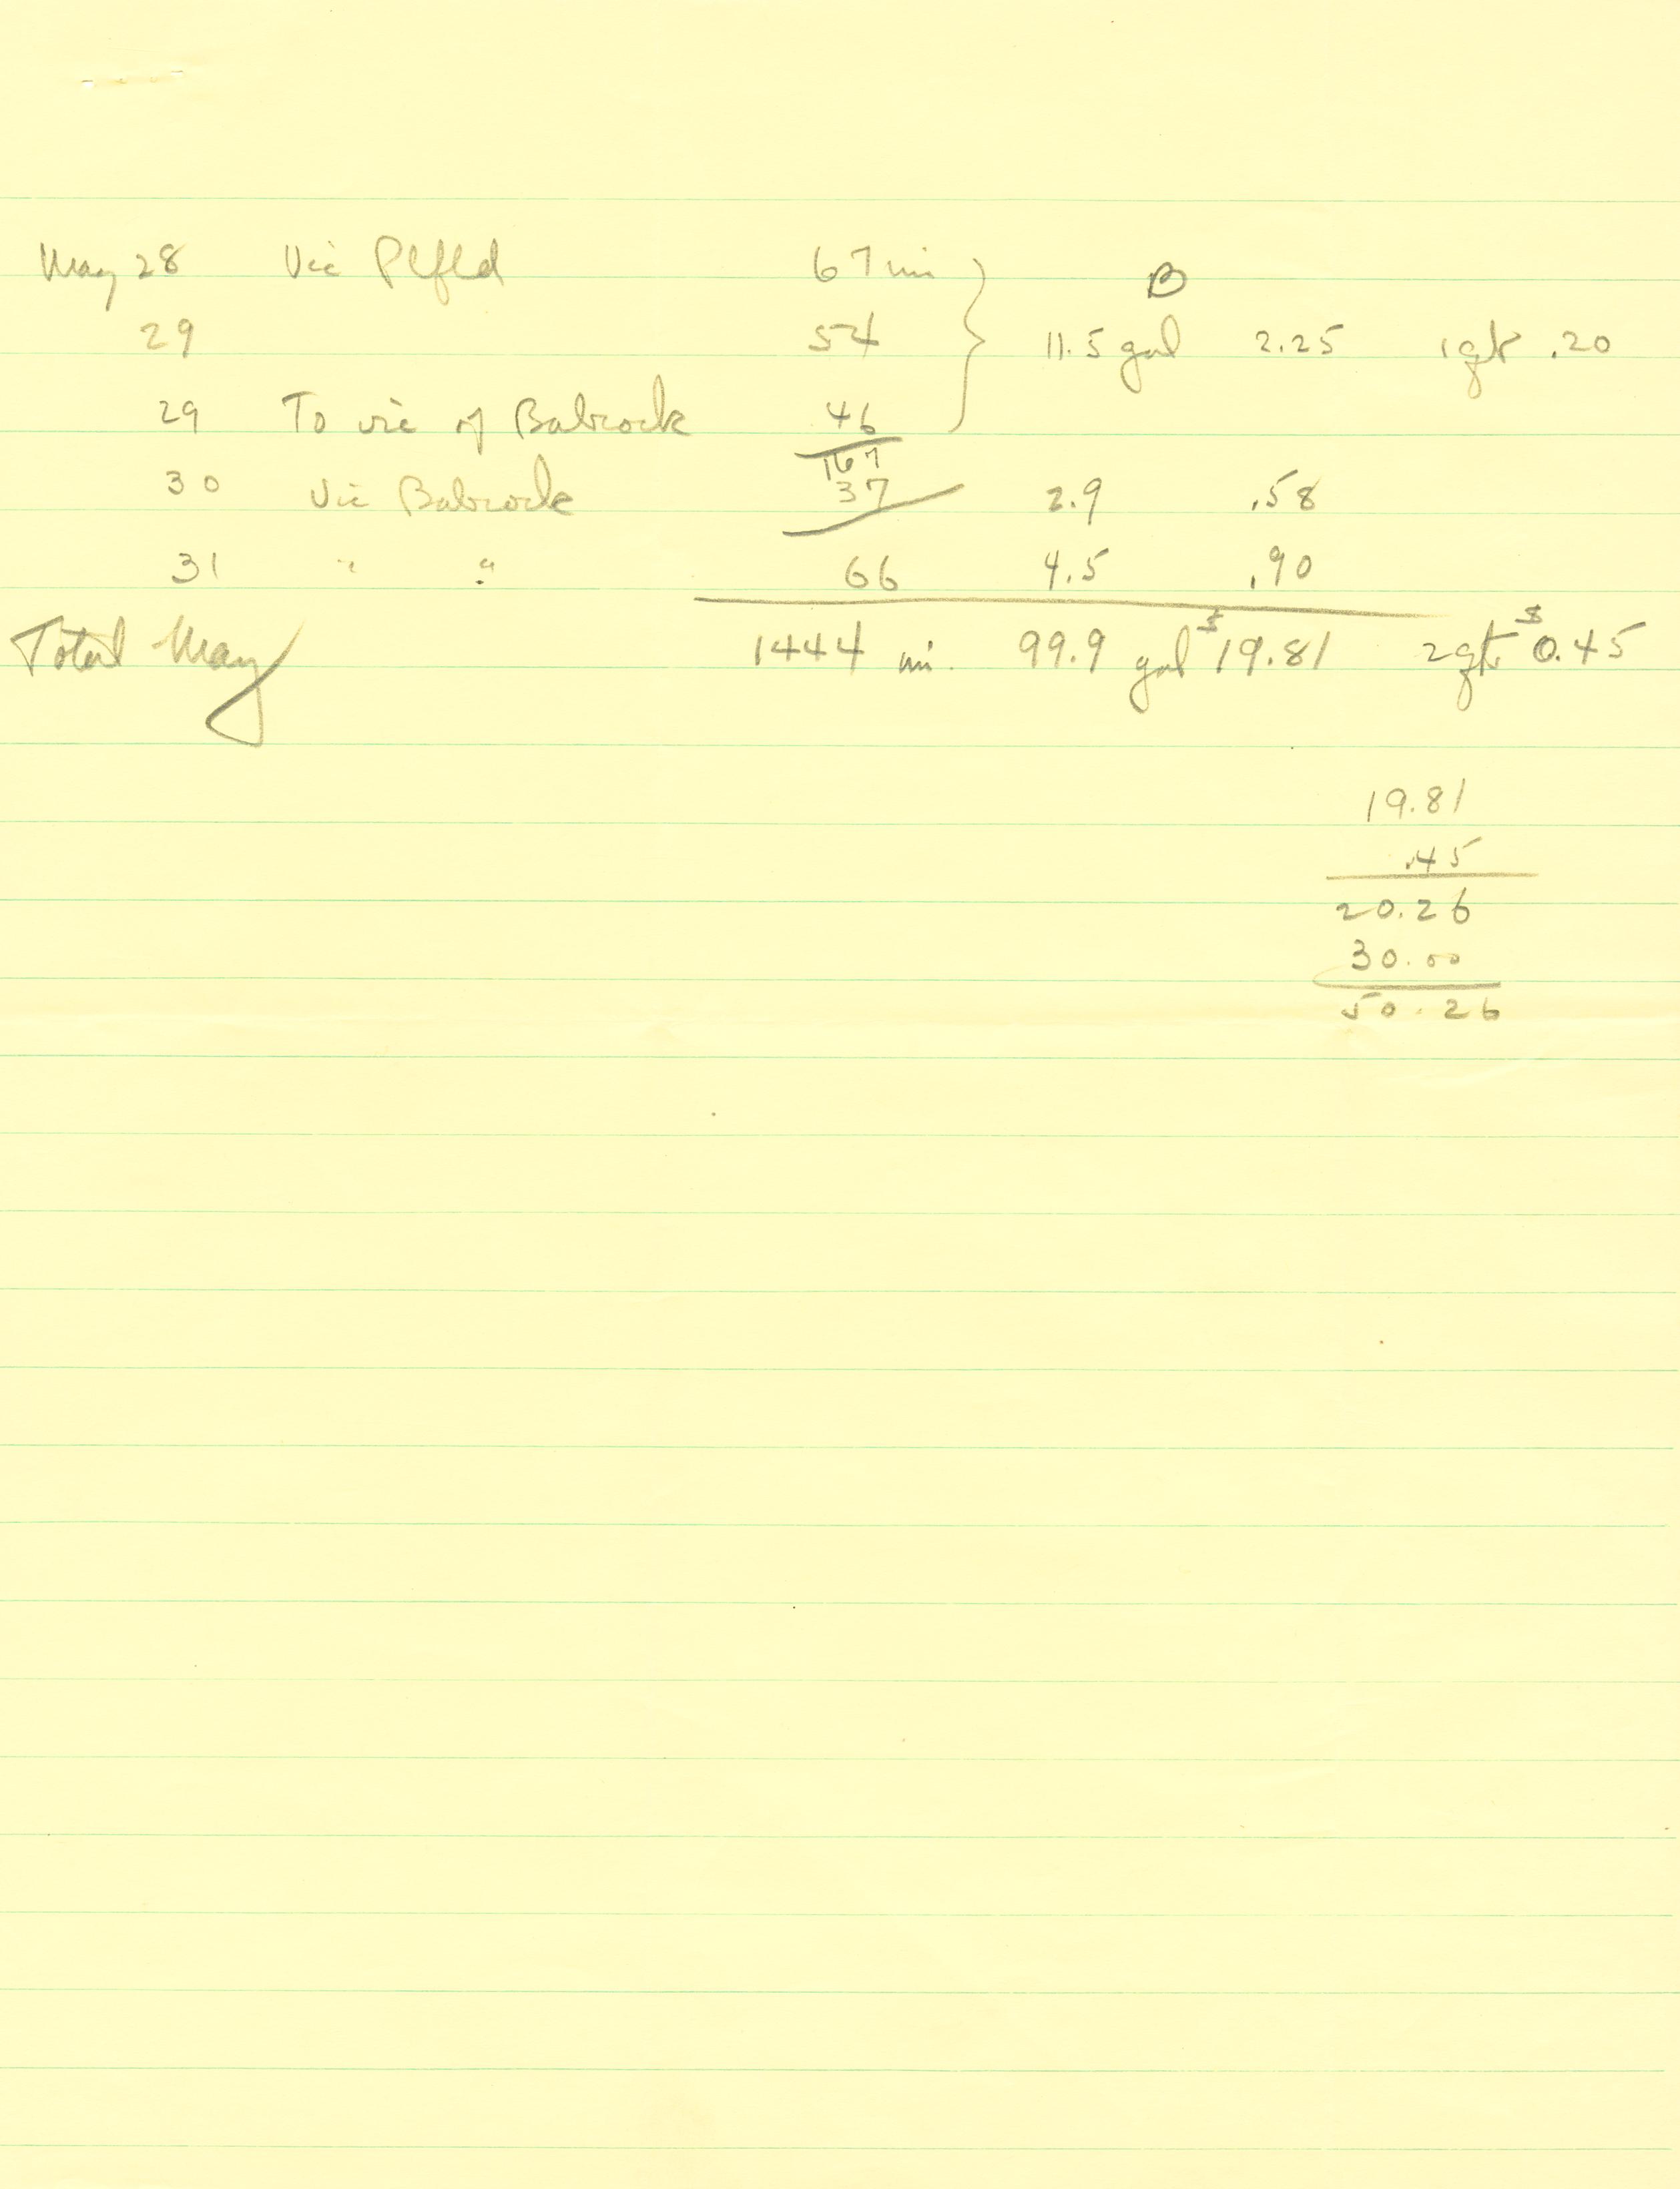 May 28 Vic Plfld 67 mi B
29 54 11.5 gal 2.25 1 qt .20
29 To vic of Babcock 46
167
30 Vic Babcock 37 2.9 .58
31 " " 66 4.5 .90
Total May 1444 mi. 99.9 gal $19.81 2 qt $0.45
19.81
.45
20.26
30.00
50.26